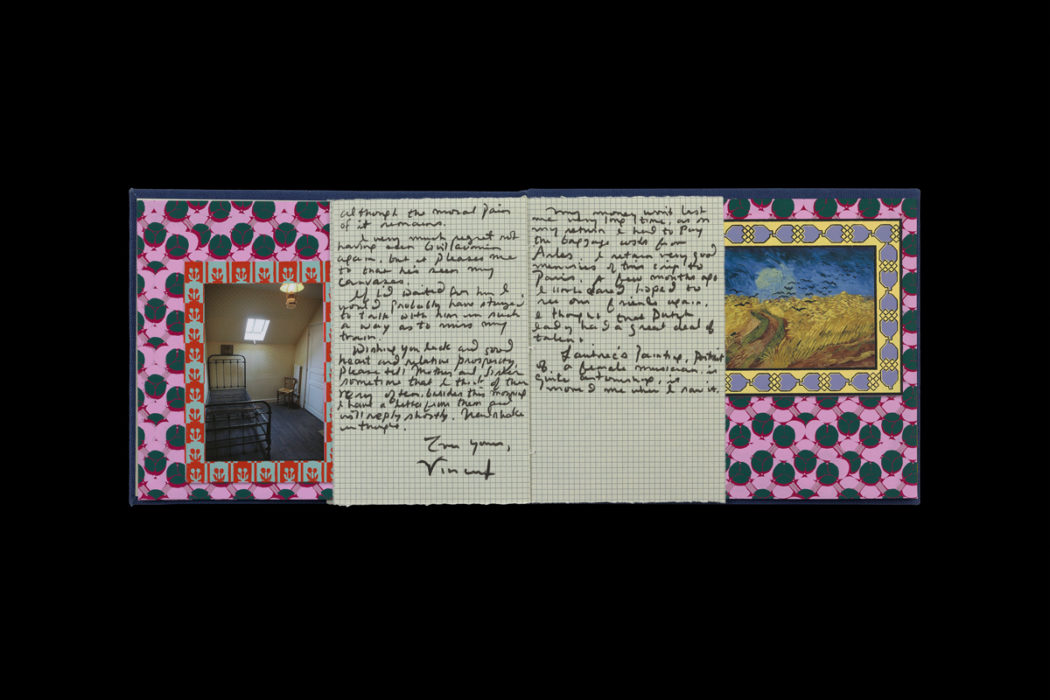 although the moral pain
of it remains.
I very much regret not
having seen Guillaumin
again, but it pleases me
to that he's seen my
canvases.
If I'd waited for him I
would probably have stayed
to talk with him in such
a way as to miss my
train.
Wishing you luck and good
heart and relative prosperity
Please tell Mother and Sister
sometime that I think of them
very often, besides this morning
I have a letter from them and
will reply shortly. Handshake
in thought.
Ever yours,
Vincent
My money won't last
me very long time, as on
my return I had to pay
the baggage costs from
Arles. I retain very good
memories of this trip to
Paris. A few months ago
I little dared hoped to
see our friends again.
I thought that Dutch
lady had a great deal of
talent.
Lautrec's painting, Portrait
of a female musician is
quite astonishing, it
moved me when I saw it.